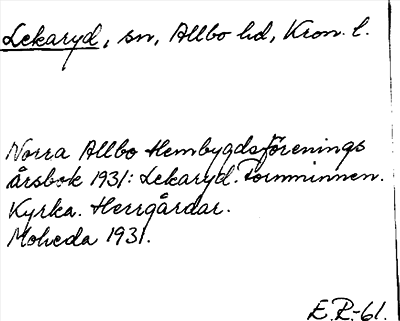 Lekaryd, sn, Allbo hd, Kron. l.
Norra Allbo Hembygdsförenings
årsbok 1931: Lekaryd. Fornminnen.
Kyrka. Herrgårdar.
Moheda 1931.
E.R.-61.